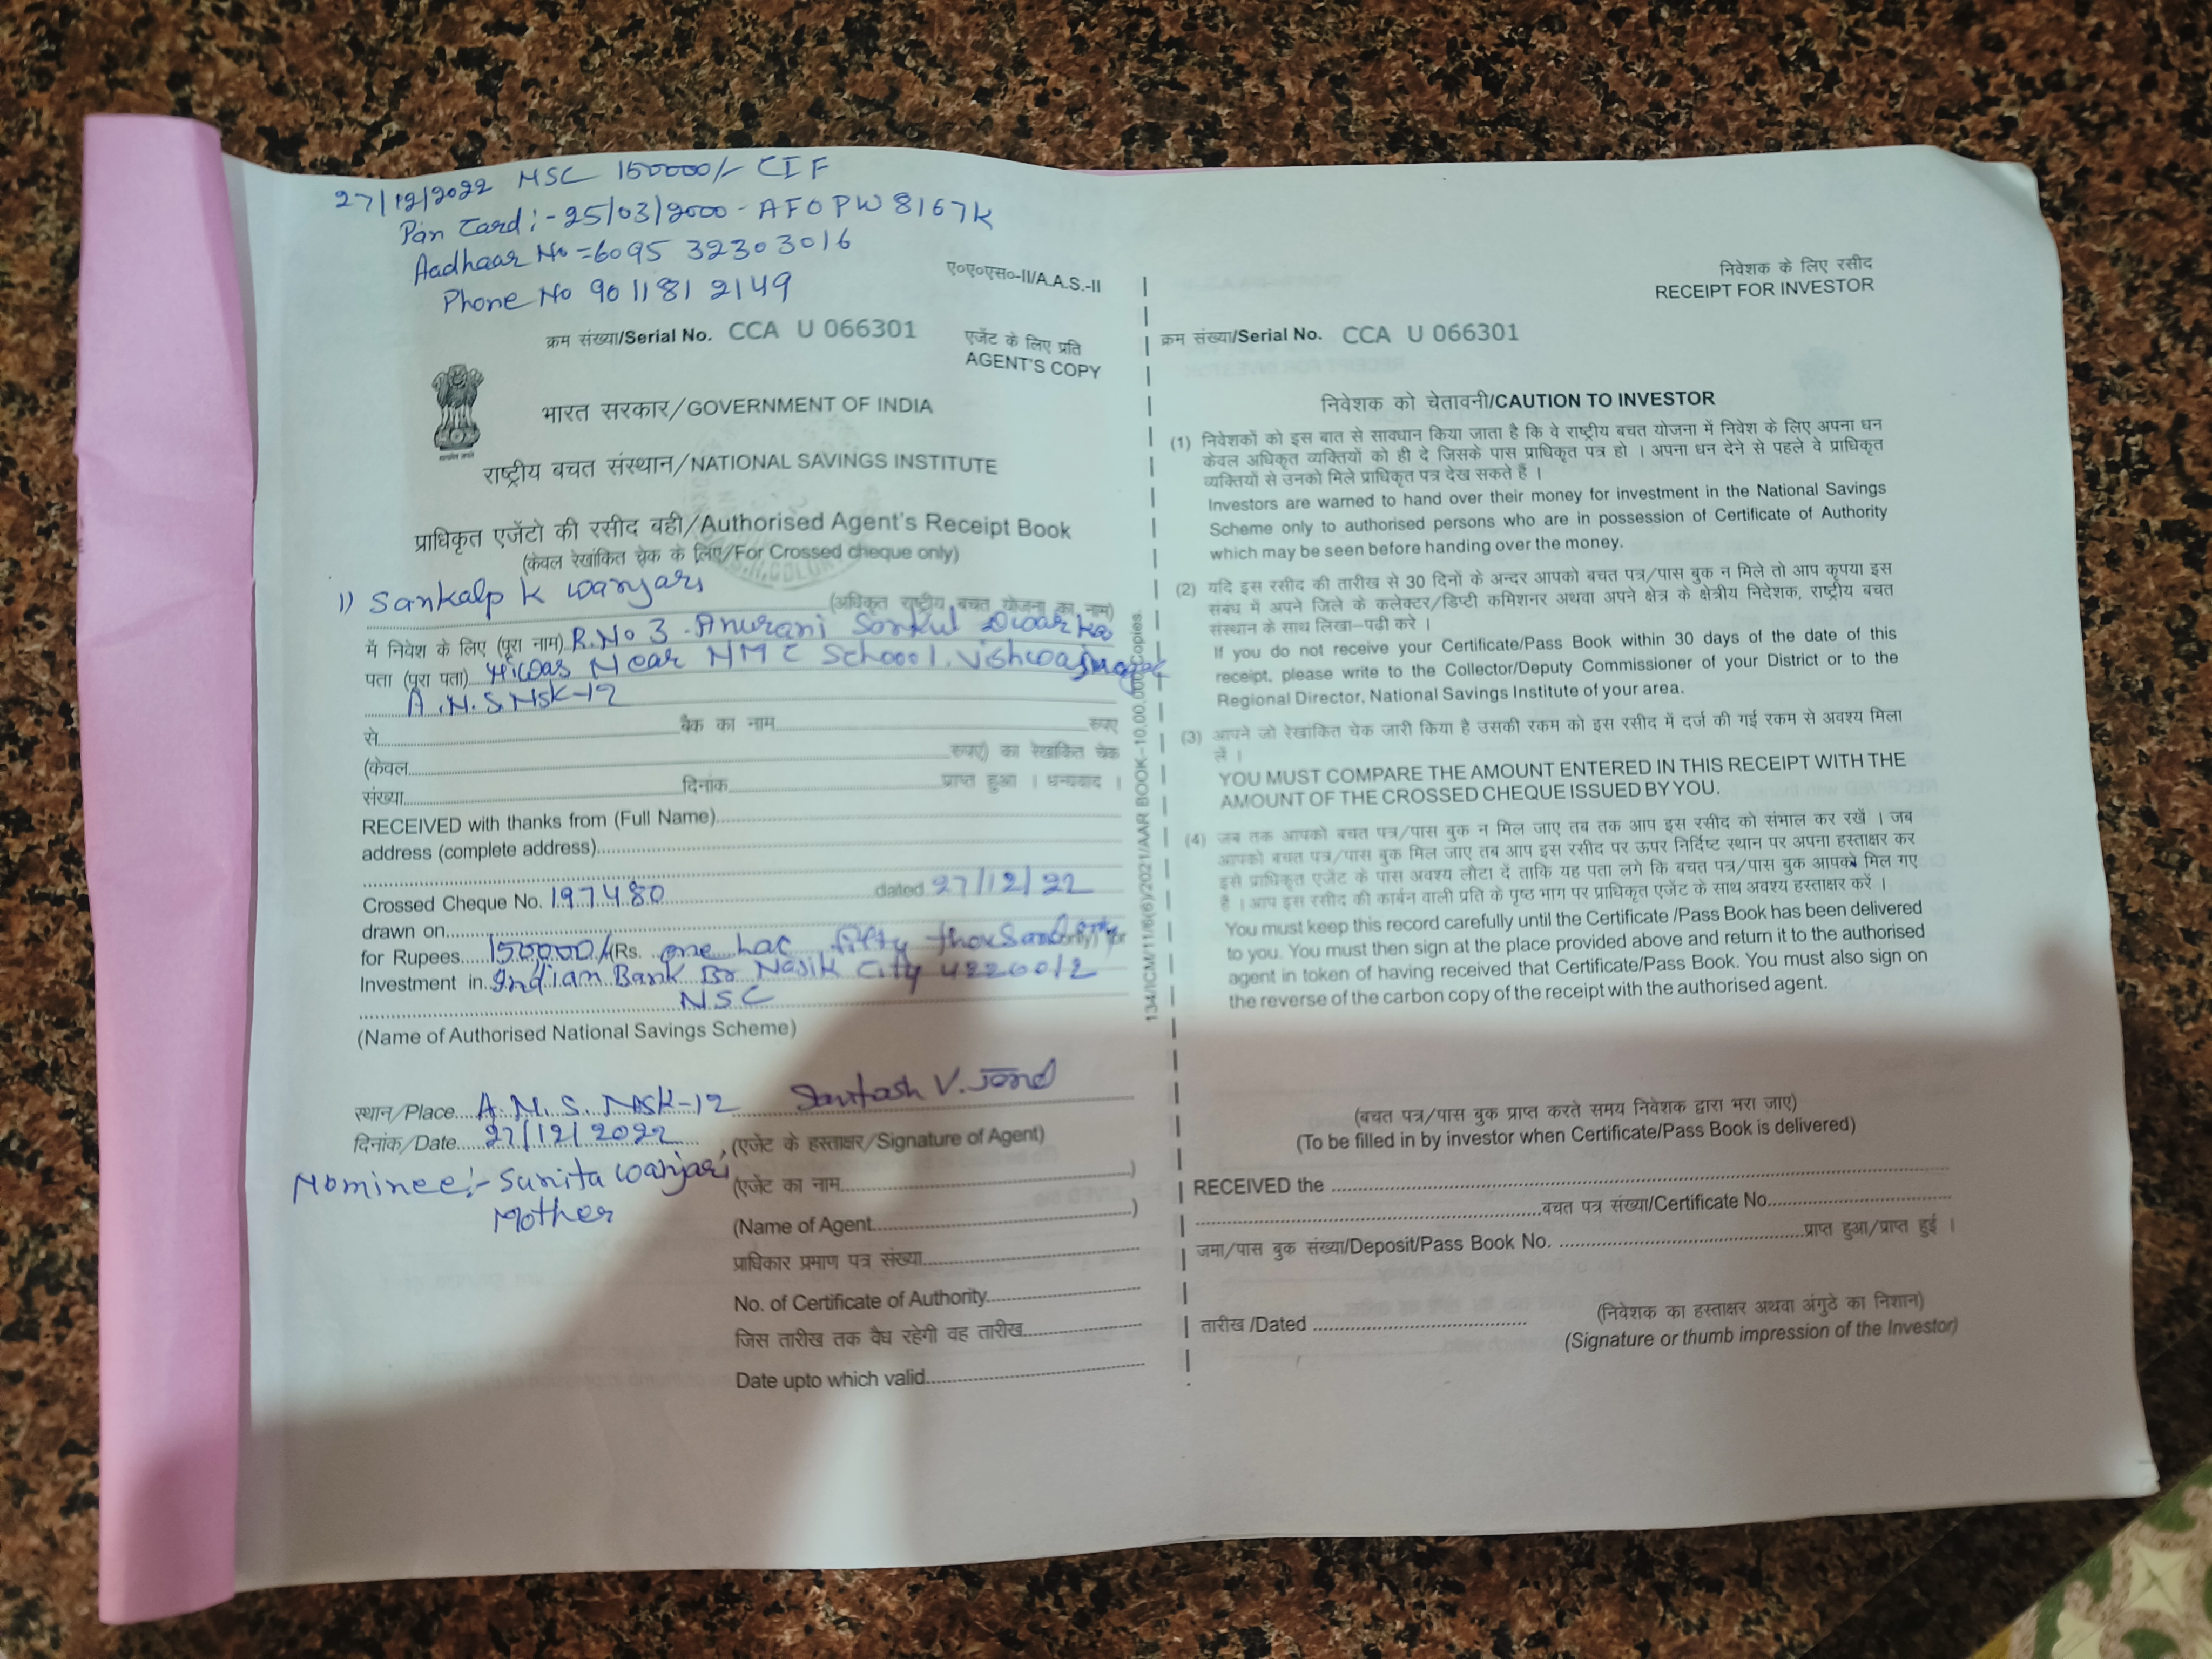 27/12/2022 NSC 150000/- CIF
Pan Card :- 25/03/2000 - AFOPW8167K
Aadhaar No = 6095 3230 3016
Phone No 901181 2149
ए०ए०एस०-II/A.A.S.-II
क्रम संख्या/Serial No. CCA U 066301
एजेंट के लिए प्रति
AGENT'S COPY
भारत सरकार/GOVERNMENT OF INDIA
राष्ट्रीय बचत संस्थान/NATIONAL SAVINGS INSTITUTE
प्राधिकृत एजेंटो की रसीद बही/Authorised Agent's Receipt Book
(केवल रेखांकित चेक के लिए/For Crossed cheque only)
1) Sankalp K Wanjari
(अधिकृत राष्ट्रीय बचत योजना का नाम)
में निवेश के लिए (पूरा नाम) R.No 3. Anurani Sankul Dwarka
पता (पूरा पता) Niwas Near NMC School. Vishwasnagar
A.N.S. NSK-12
से बैंक का नाम रूपए
(केवल रूपए) का रेखांकित चेक
संख्या दिनांक प्राप्त हुआ । धन्यवाद ।
RECEIVED with thanks from (Full Name)
address (complete address)
Crossed Cheque No. 197480 dated 27/12/22
drawn on
for Rupees 150000/- (Rs. one lac fifty thousand only) for
Investment in Indian Bank Br Nasik City 4220012
NSC
(Name of Authorised National Savings Scheme)
स्थान/Place A.N.S. NSK-12 Santosh V.
दिनांक/Date 27/12/2022 (एजेंट के हस्ताक्षर/Signature of Agent)
Nominee :- Sunita Wanjari
Mother
(एजेंट का नाम )
(Name of Agent )
प्राधिकार प्रमाण पत्र संख्या
No. of Certificate of Authority
जिस तारीख तक वैध रहेगी वह तारीख
Date upto which valid
134/ICM/11/6(6)/2021/AAR BOOK-10,00,000 Copies.
निवेशक के लिए रसीद
RECEIPT FOR INVESTOR
क्रम संख्या/Serial No. CCA U 066301
निवेशक को चेतावनी/CAUTION TO INVESTOR
(1) निवेशकों को इस बात से सावधान किया जाता है कि वे राष्ट्रीय बचत योजना में निवेश के लिए अपना धन
केवल अधिकृत व्यक्तियों को ही दे जिसके पास प्राधिकृत पत्र हो । अपना धन देने से पहले वे प्राधिकृत
व्यक्तियों से उनको मिले प्राधिकृत पत्र देख सकते हैं ।
Investors are warned to hand over their money for investment in the National Savings
Scheme only to authorised persons who are in possession of Certificate of Authority
which may be seen before handing over the money.
(2) यदि इस रसीद की तारीख से 30 दिनों के अन्दर आपको बचत पत्र/पास बुक न मिले तो आप कृपया इस
संबंध में अपने जिले के कलेक्टर/डिप्टी कमिशनर अथवा अपने क्षेत्र के क्षेत्रीय निदेशक, राष्ट्रीय बचत
संस्थान के साथ लिखा-पढी करे ।
If you do not receive your Certificate/Pass Book within 30 days of the date of this
receipt, please write to the Collector/Deputy Commissioner of your District or to the
Regional Director, National Savings Institute of your area.
(3) आपने जो रेखांकित चेक जारी किया है उसकी रकम को इस रसीद में दर्ज की गई रकम से अवश्य मिला
लें ।
YOU MUST COMPARE THE AMOUNT ENTERED IN THIS RECEIPT WITH THE
AMOUNT OF THE CROSSED CHEQUE ISSUED BY YOU.
(4) जब तक आपको बचत पत्र/पास बुक न मिल जाए तब तक आप इस रसीद को संभाल कर रखें । जब
आपको बचत पत्र/पास बुक मिल जाए तब आप इस रसीद पर ऊपर निर्दिष्ट स्थान पर अपना हस्ताक्षर कर
इसे प्राधिकृत एजेंट के पास अवश्य लौटा दें ताकि यह पता लगे कि बचत पत्र/पास बुक आपको मिल गए
है । आप इस रसीद की कार्बन वाली प्रति के पृष्ठ भाग पर प्राधिकृत एजेंट के साथ अवश्य हस्ताक्षर करें ।
You must keep this record carefully until the Certificate /Pass Book has been delivered
to you. You must then sign at the place provided above and return it to the authorised
agent in token of having received that Certificate/Pass Book. You must also sign on
the reverse of the carbon copy of the receipt with the authorised agent.
(बचत पत्र/पास बुक प्राप्त करते समय निवेशक द्वारा भरा जाए)
(To be filled in by investor when Certificate/Pass Book is delivered)
RECEIVED the
बचत पत्र संख्या/Certificate No.
जमा/पास बुक संख्या/Deposit/Pass Book No. प्राप्त हुआ/प्राप्त हुई ।
(निवेशक का हस्ताक्षर अथवा अंगुठे का निशान)
तारीख /Dated
(Signature or thumb impression of the Investor)